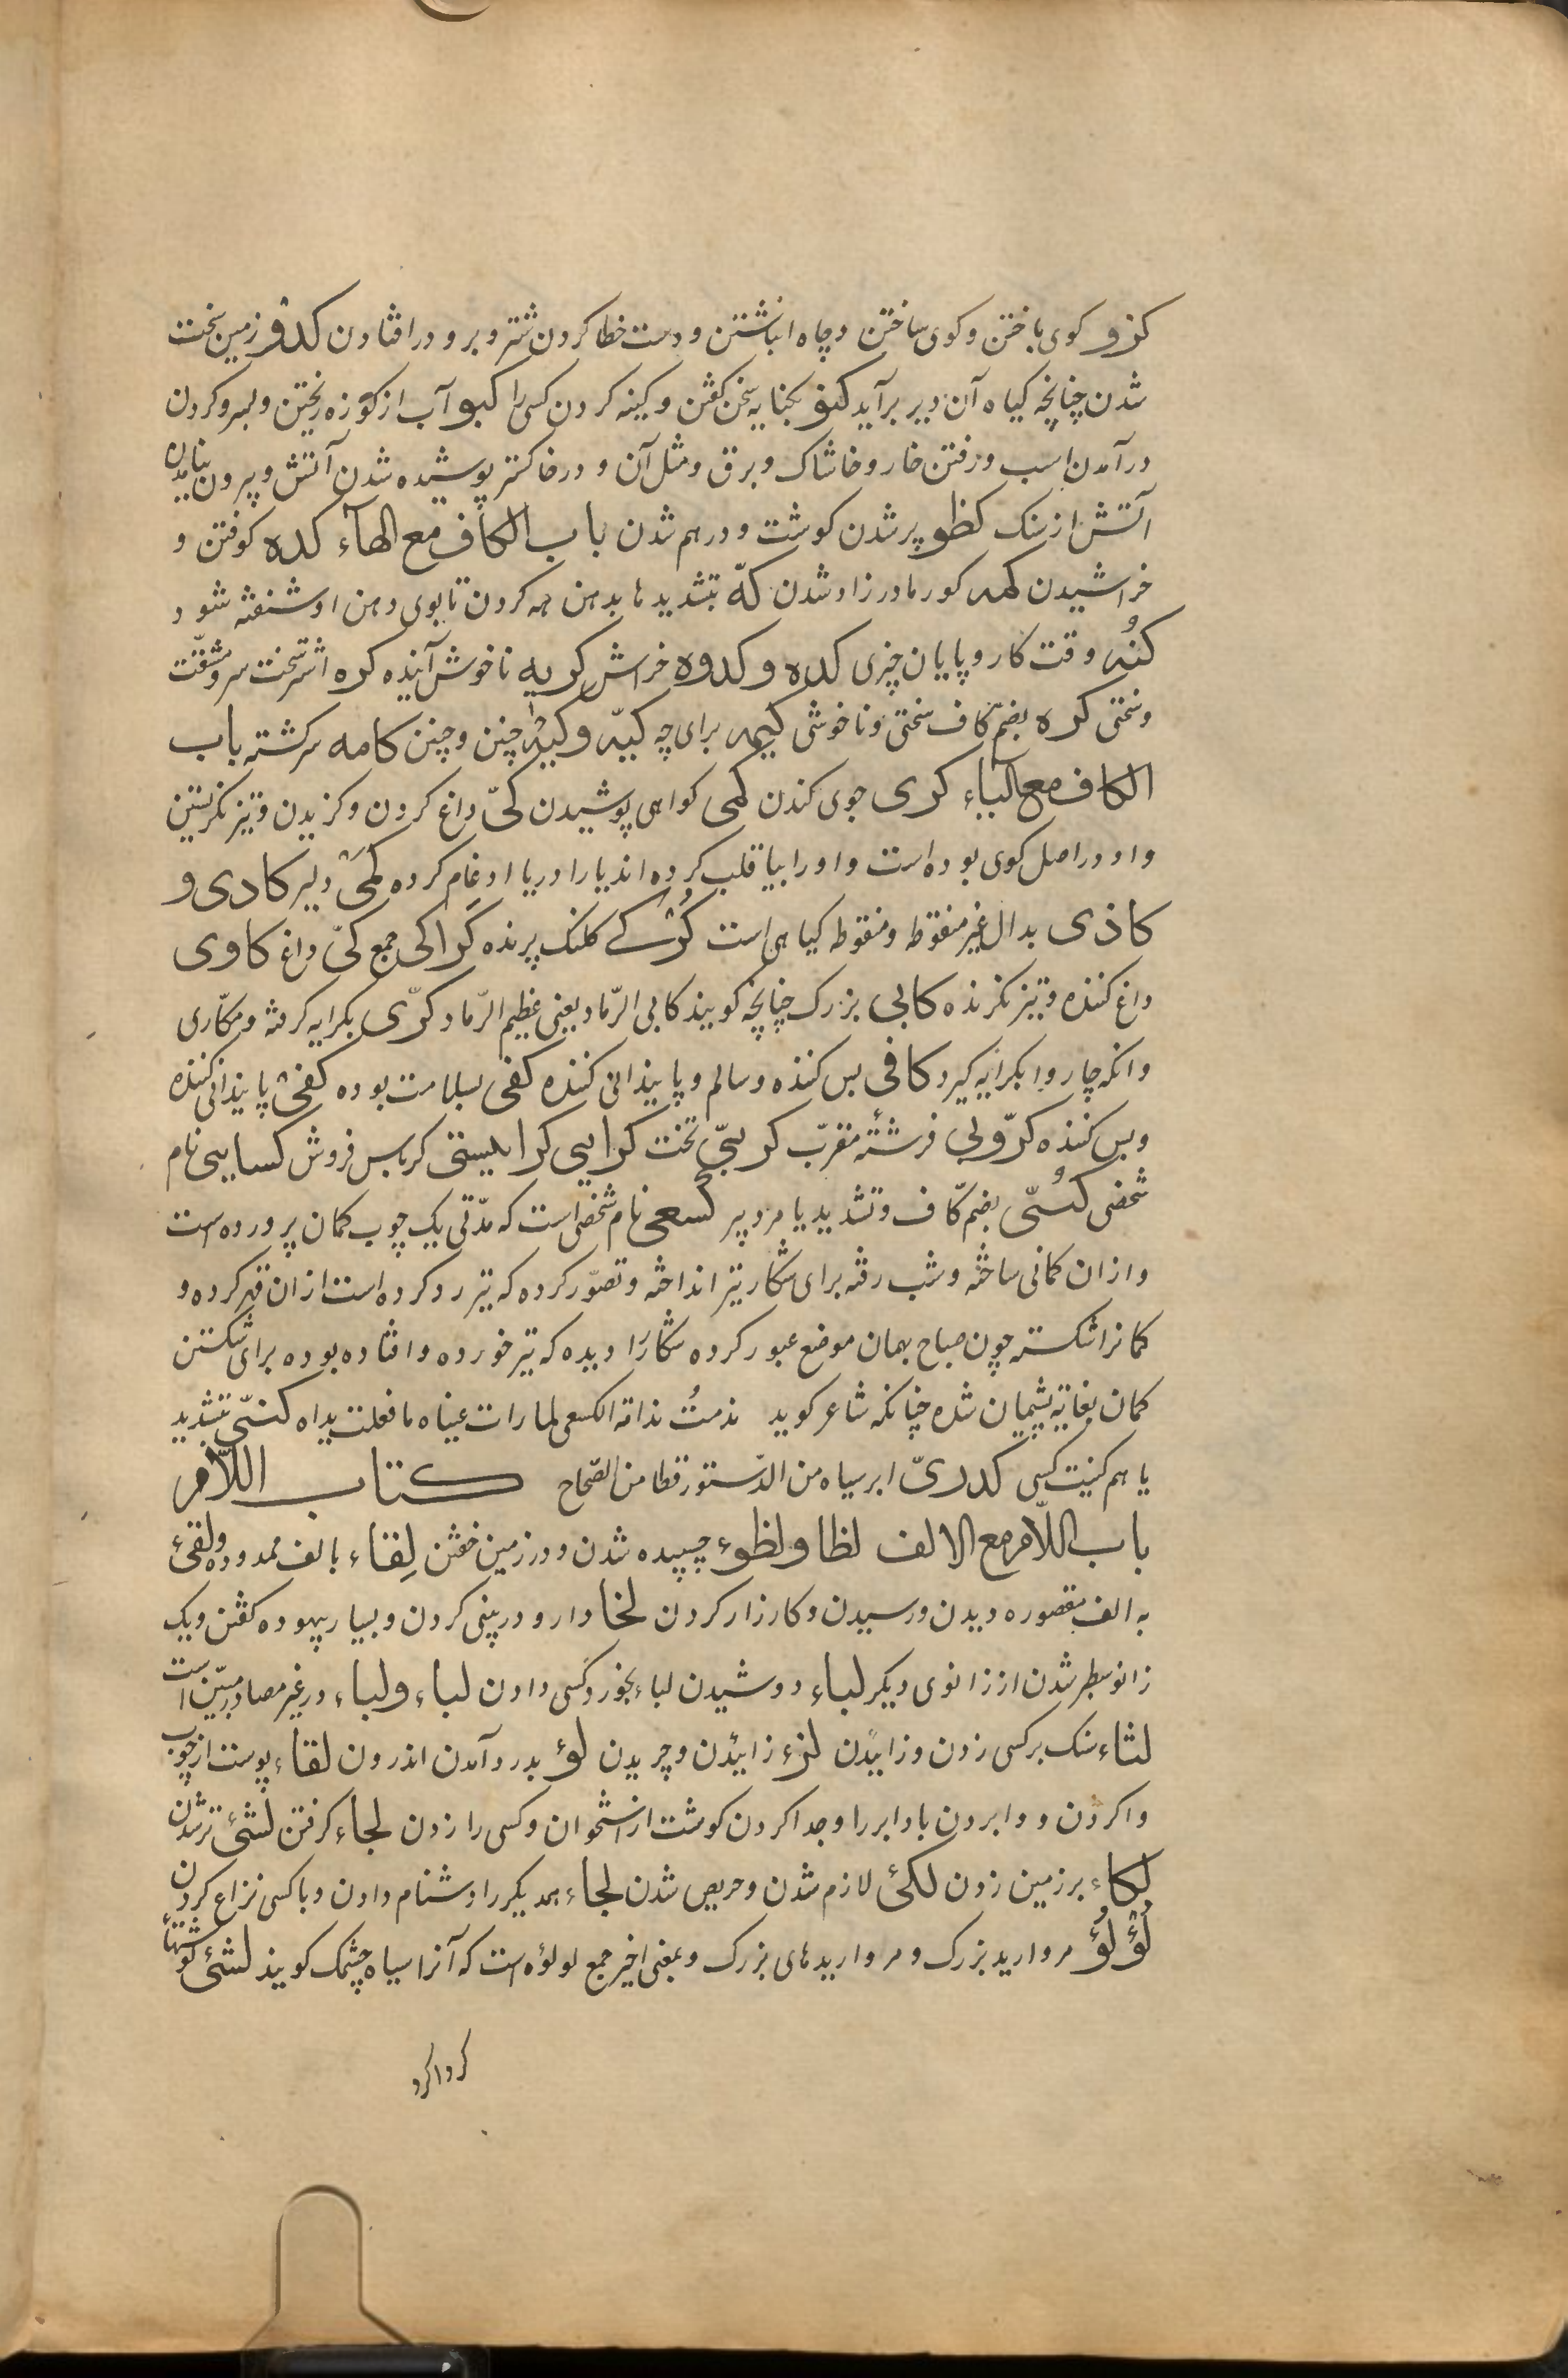 کرو کوی باختن و کوی ساختن و چاه انباشتن و دست خطا کردن شتر و برو در افتادن کدو زمین سخت
شدن چنانچه کیاه آن دیر برآید کنو بکنایه سخن کفتن و کینه کردن کسی را کبو آب از کوزه ریختن و لمبرو کردن
درآمدن اسب و رفتن خار و خاشاک و برق و مثل آن و در خاکستر پوشیده شدن آتش و پرون نیامدن
آتش از سنک کظو پر شدن کوشت و درهم شدن باب الکاف مع الهآء کده کوفتن و
خراشیدن کمه کور مادر زاد شدن کهّ بتشدید ها بدهن هه کردن تا بوی دهن او شنفته شود
کُنه وقت کار و پایان چیزی کده و کدوه خراش کریه ناخوش آینده کره اشتر سخت سر و مشقّت
و سختی کره بضمّ کاف سختی و ناخوشی کیمه برای چه کیّه و کیه چنین و چنین کامه سرکشته باب
الکاف مع الیآء کری جوی کندن کمی کواهی پوشیدن کیّ داغ کردن و کزیدن و تیز نکریستن
و او در اصل کوی بوده است واو را بیا قلب کرده اند یا را در یا ادغام کرده کمی دلیر کادی و
کاذی بدال غیر منقوطه و منقوطه کیاهی است کُرکے کلنک پرنده کراکی جمع کیّ داغ کاوی
داغ کننده و تیز نکرنده کابی بزرک چنانچه کویند کابی الرّماد یعنی عظیم الرّماد کرّی بکرایه کرفته و مکاری
و انکه چاروا بکرایه کیرد کافی بس کننده و سالم و پایندانی کننده کفی بسلامت بوده کفی پایندانی کننده
و بس کننده کرّوبی فرشتۀ مقرّب کرسیّ تخت کراسی کرابیسی کرباس فروش کسایی نام
شخصی کُستّی بضمّ کاف و تشدید یا مرد پیر کُسعی نام شخصی است که مدّتی یک چوب کمان پرورده است
و ازان کمانی ساخته و شب رفته برای شکار تیر انداخته و تصوّر کرده که تیر رد کرده است از ان قهر کرده و
کمانرا شکسته چون صباح بهمان موضع عبور کرده شکار را دیده که تیر خورده و افتاده بوده برای شکستن
کمان بغایة پشیمان شده چنانکه شاعر کوید ندمتُ ندامة الکسعی لما رات عیناه ما فعلت یداه کنیّ بتشدید
یا هم کنیت کسی کدریّ ابر سیاه من الدّستور قطا من الصّحاح کتاب اللّام
باب اللّام مع الالف لظا و لظوء چسپیده شدن و در زمین خفتن لِقاء بالف ممدوده و لقیٔ
به الف مقصوره دیدن و رسیدن و کارزار کردن لخا دارو در پینی کردن و بسیار پیهوده کفتن و یک
زانو سطبر شدن از زانوی دیکر لباء دوشیدن لباء بخورد کسی دادن لباء و لباء در غیر مصادر مبیّن است
لتاء سنک بر کسی زدن و زاییدن لزء زائیدن و چریدن لؤ بدر و آمدن اندرون لقاء پوست از چوب
وا کردن و وا بردن باد ابر را و جدا کردن کوشت از استخوان و کسی را زدن لجاء کرفتن لشیٔ تر شدن
لکاء بر زمین زدن لکیٔ لازم شدن و حریص شدن لجاء همدیکر را دشنام دادن و با کسی نزاع کردن
لُؤلُؤ مروارید بزرک و مرواریدهای بزرک و بمعنی اخیر جمع لولؤه است که آنرا سیاه چشمک کویند لشیٔ کوشتها
کرداکرد